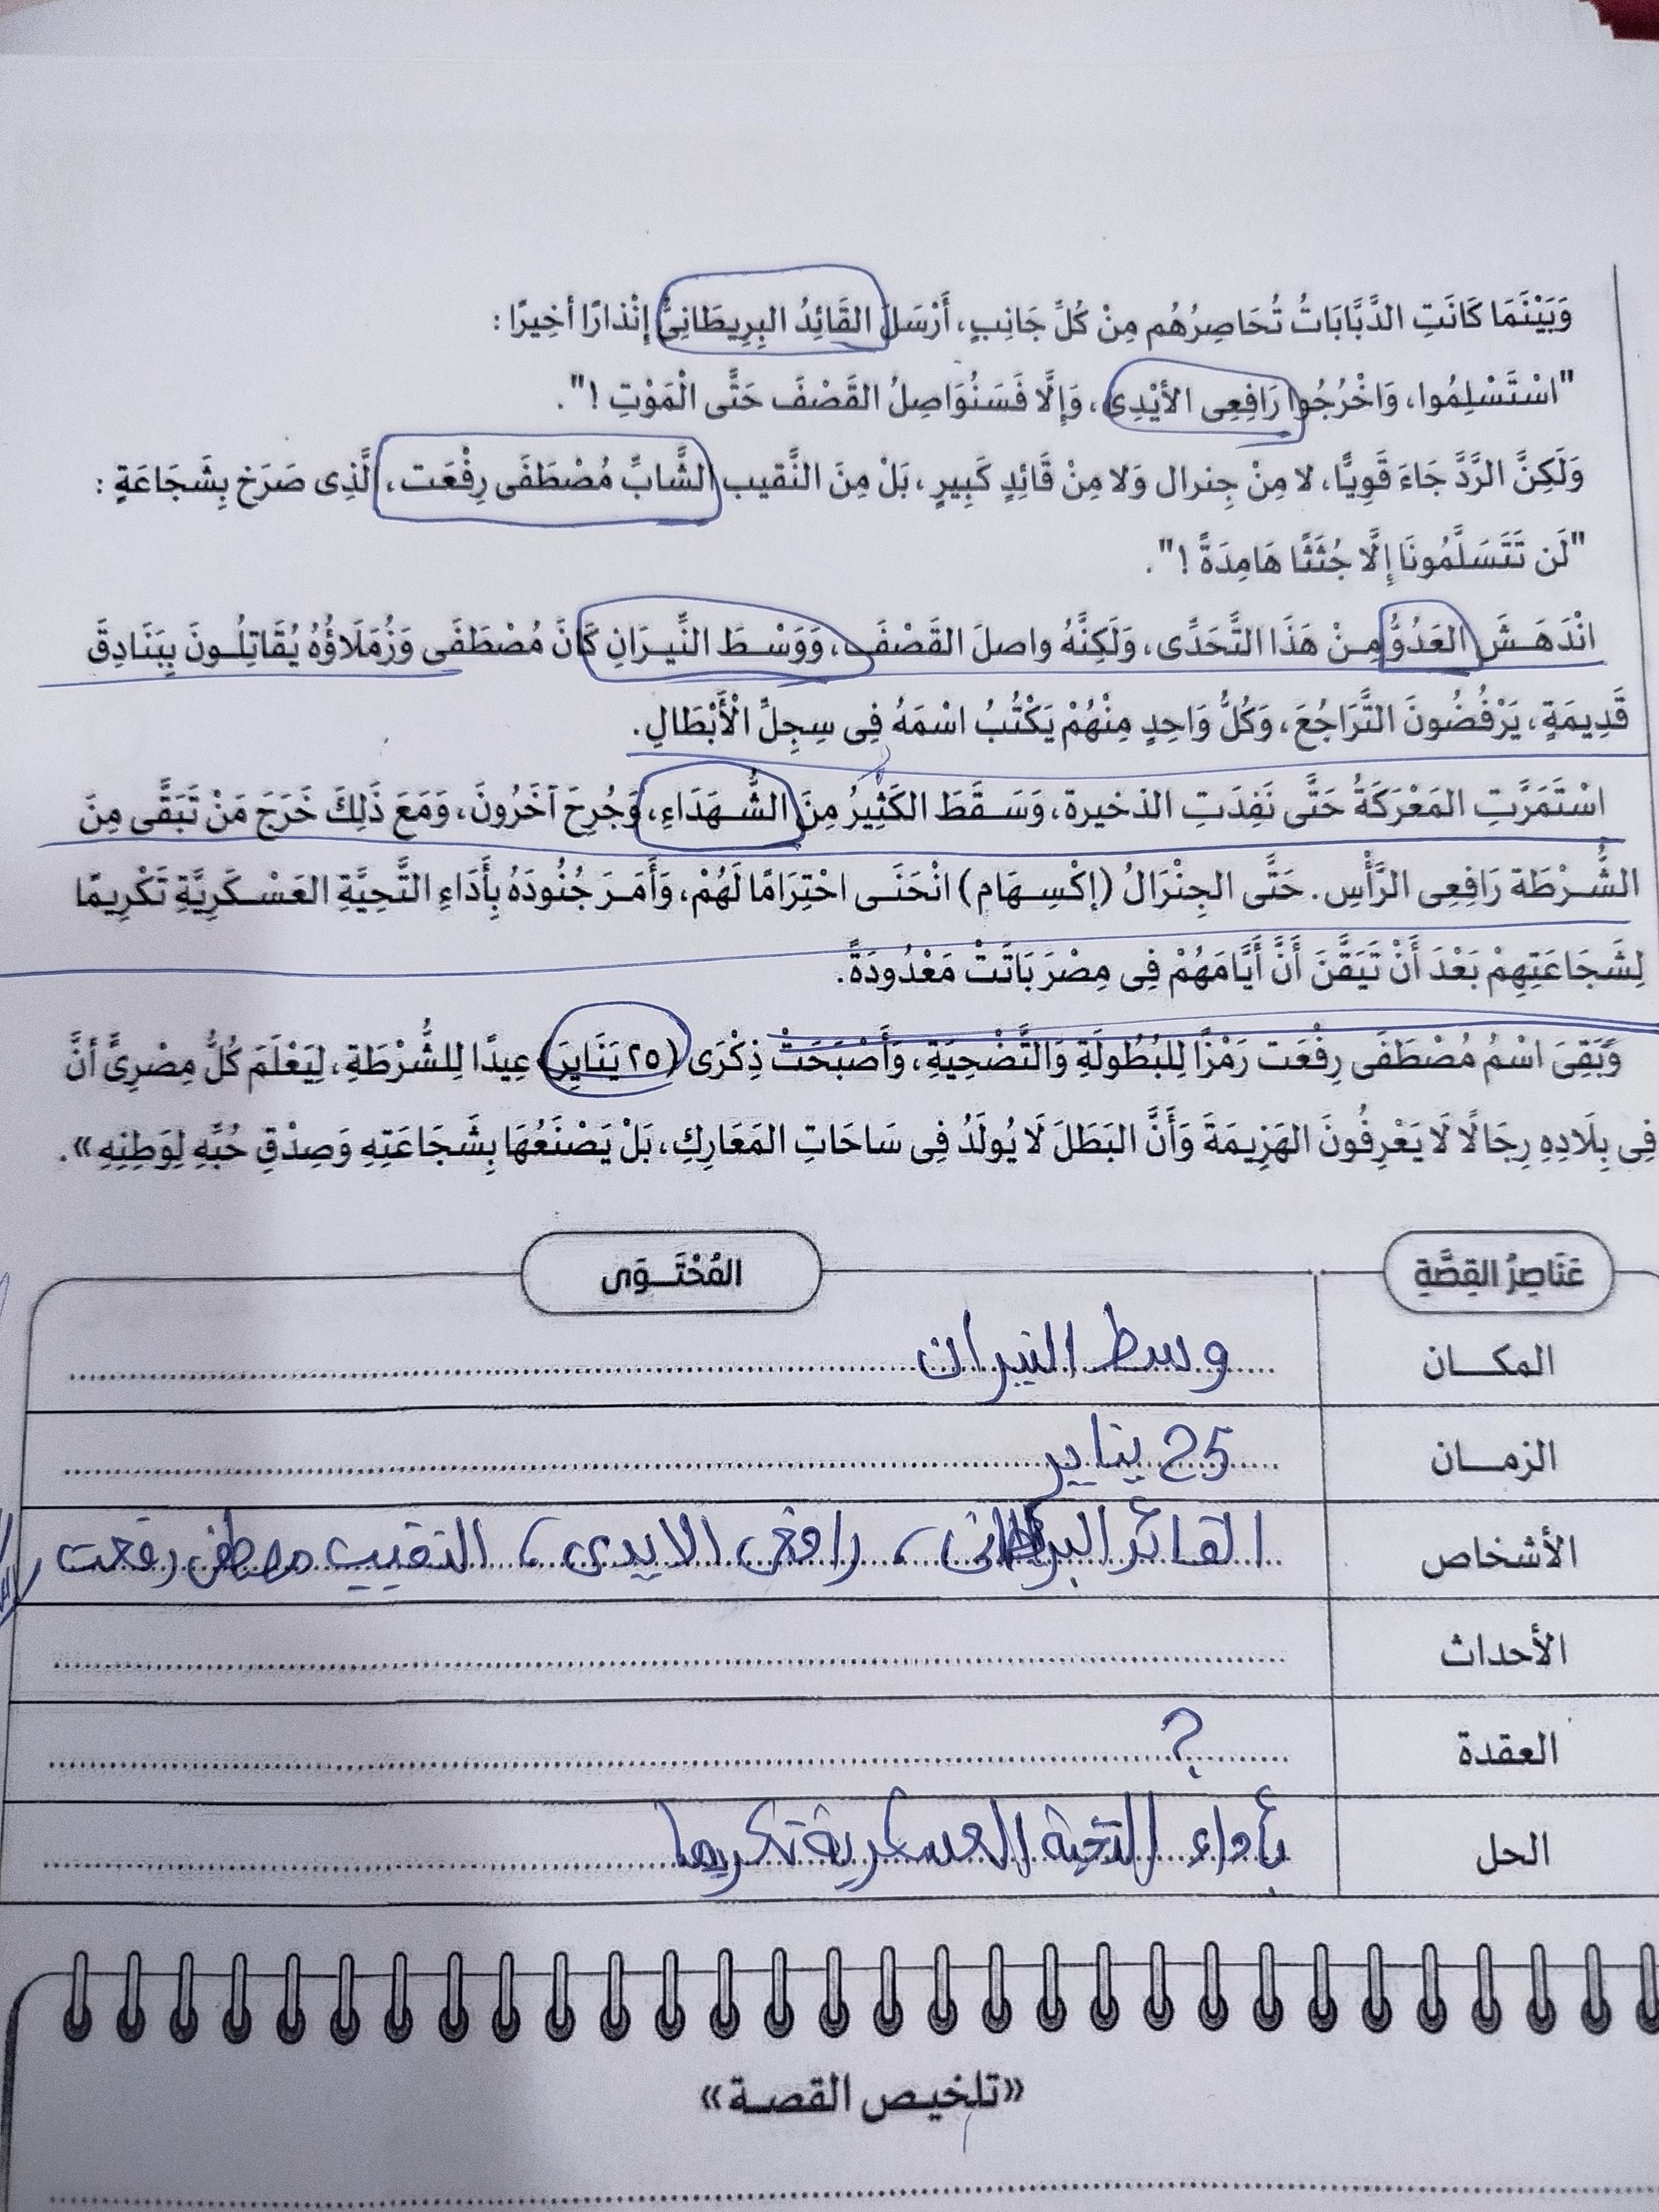 وَبَيْنَمَا كَانَتِ الدَّبَّابَاتُ تُحَاصِرُهُم مِنْ كُلِّ جَانِبٍ، أَرْسَلَ القَائِدُ البِرِيطَانِىُّ إِنْذارًا أخِيرًا :
"اسْتَسْلِمُوا، وَاخْرُجُوا رَافِعِى الأيْدِى، وَإِلَّا فَسَنُوَاصِلُ القَصْفَ حَتَّى الْمَوْتِ !".
وَلَكِنَّ الرَّدَّ جَاءَ قَوِيًّا، لا مِنْ جِنرال وَلا مِنْ قَائِدٍ كَبِيرٍ، بَلْ مِنَ النَّقيب الشَّابِّ مُصْطَفَى رِفْعَت، الَّذِى صَرَخ بِشَجَاعَةٍ :
"لَن تَتَسَلَّمُونَا إِلَّا جُثَثًا هَامِدَةً !".
انْدَهَشَ العَدُوُّ مِنْ هَذَا التَّحَدِّى، وَلَكِنَّهُ واصلَ القَصْفَ، وَوَسْطَ النِّيرَانِ كَانَ مُصْطَفَى وَزُمَلَاؤُهُ يُقَاتِلُونَ بِبَنَادِقَ
قَدِيمَةٍ، يَرْفُضُونَ التَّرَاجُعَ، وَكُلُّ وَاحِدٍ مِنْهُمْ يَكْتُبُ اسْمَهُ فِى سِجِلِّ الْأَبْطَالِ.
اسْتَمَرَّتِ المَعْرَكَةُ حَتَّى نَفِدَتِ الذخيرة، وَسَقَطَ الكَثِيرُ مِنَ الشُّهَدَاءِ، وَجُرِحَ آخَرُونَ، وَمَعَ ذَلِكَ خَرَجَ مَنْ تَبَقَّى مِنَ
الشُّرْطَة رَافِعِى الرَّأْسِ. حَتَّى الجِنْرَالُ (إكْسِهَام) انْحَنَى احْتِرَامًا لَهُمْ، وَأَمَرَ جُنُودَهُ بِأَدَاءِ التَّحِيَّةِ العَسْكَرِيَّةِ تَكْرِيمًا
لِشَجَاعَتِهِمْ بَعْدَ أَنْ تَيَقَّنَ أَنَّ أَيَّامَهُمْ فِى مِصْرَ بَاتَتْ مَعْدُودَةً.
وَبَقِىَ اسْمُ مُصْطَفَى رِفْعَت رَمْزًا لِلبُطُولَةِ وَالتَّضْحِيَةِ، وَأَصْبَحَتْ ذِكْرَى (٢٥ يَنَايِرَ) عِيدًا لِلشُّرْطَةِ، لِيَعْلَمَ كُلُّ مِصْرِىٍّ أَنَّ
فِى بِلَادِهِ رِجَالًا لَا يَعْرِفُونَ الهَزِيمَةَ وَأَنَّ البَطَلَ لَا يُولَدُ فِى سَاحَاتِ المَعَارِكِ، بَلْ يَصْنَعُهَا بِشَجَاعَتِهِ وَصِدْقِ حُبِّهِ لِوَطِنِهِ».
عَنَاصِرُ القِصَّةِ المُحْتَوَى
المكان وسط النيران
الزمان 25 يناير
الأشخاص القائد البريطانى، رافعى الايدى، النقيب مصطفى رفعت
الأحداث
العقدة ?
الحل بأداء التحية العسكرية تكريما
«تلخيص القصة»